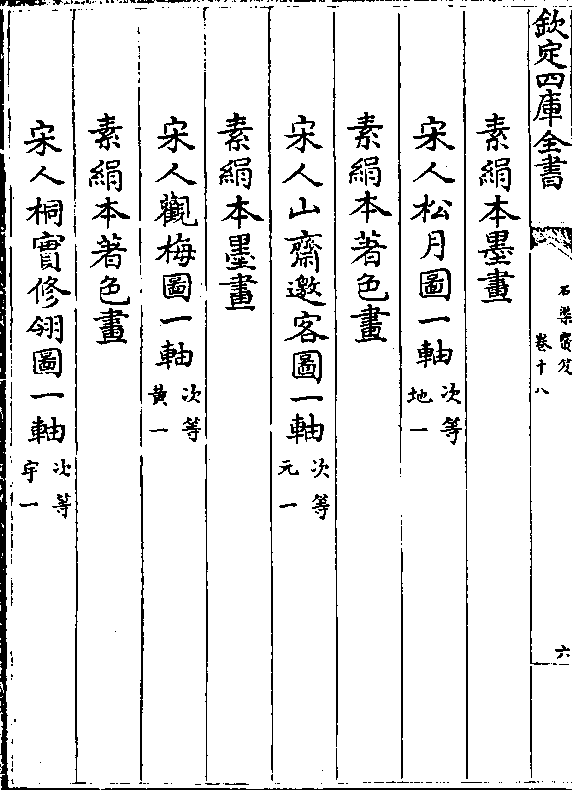 欽定四庫全書
石渠寶笈
卷十八
六
素絹本墨畫
宋人松月圖一軸 次等地一
素絹本著色畫
宋人山齋邀客圖一軸 次等元一
素絹本墨畫
宋人觀梅圖一軸 次等黄一
素絹本著色畫
宋人桐實修翎圖一軸 次等宇一